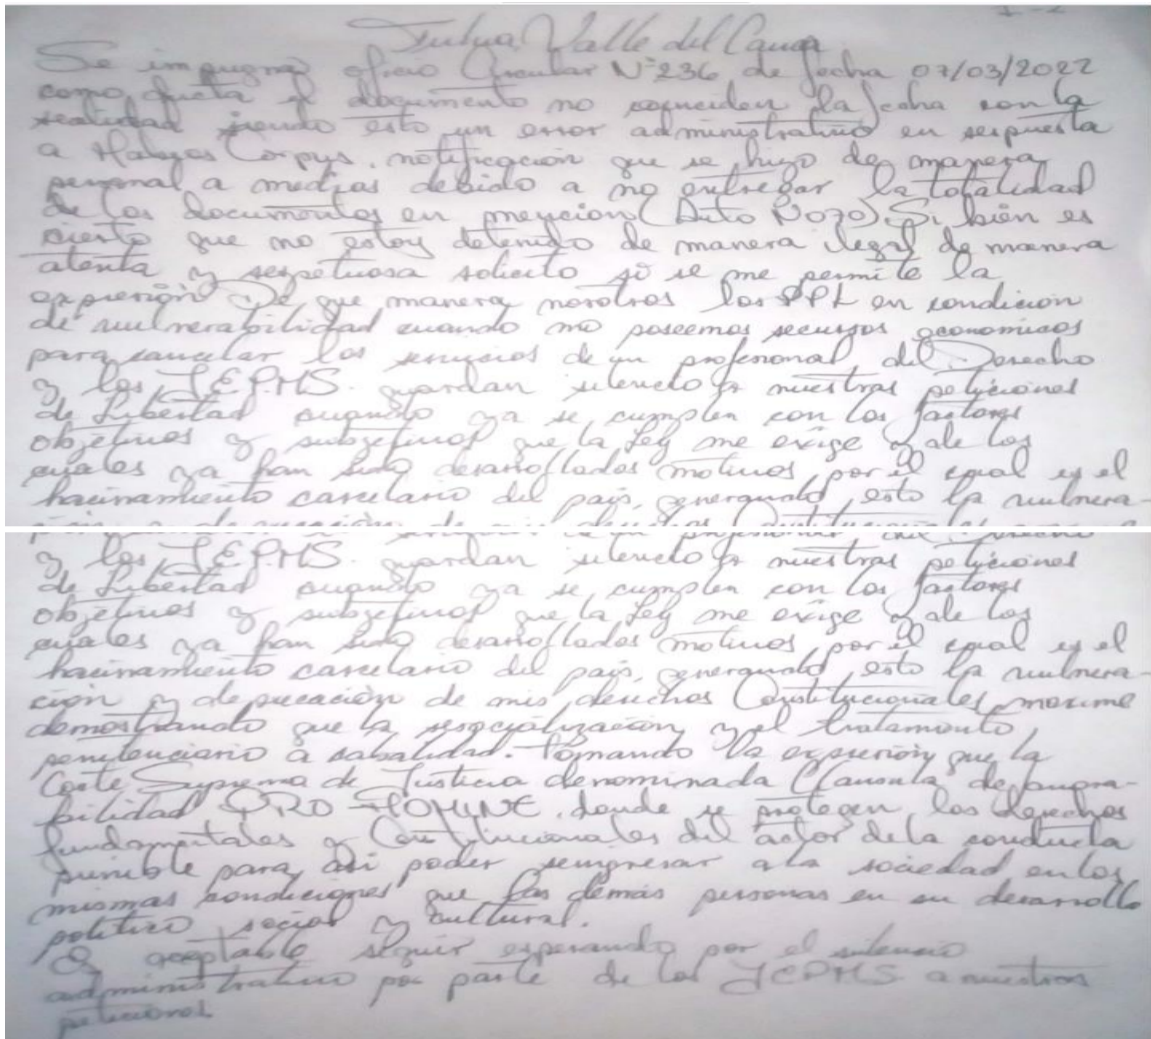 Tulua Valle del Cauca
Se impugna oficio Circular N°236 de fecha 07/03/2022
como dicta el documento no coinciden la fecha con la
realidad siendo esto un error administrativo en respuesta
a Habeas Corpus, notificación que se hizo de manera
personal a medias debido a no entregar la totalidad
de los documentos en mención (Auto N°070). Si bien es
cierto que no estoy detenido de manera legal de manera
atenta y respetuosa solicito si se me permite la
expresión De que manera nosotros los PPL en condición
de vulnerabilidad cuando no poseemos recursos economicos
para cancelar los servicios de un profesional del Derecho
y los JEPMS guardan silencio a nuestras peticiones
de Libertad cuando ya se cumplen con los factores
objetivos y subjetivos que la Ley me exige y de los
cuales ya han sido desarrollados motivos por el cual es el
hacinamiento carcelario del país, generando esto la vulnera-
y los JEPMS. guardan silencio a nuestras peticiones
de Libertad cuando ya se cumplen con los factores
objetivos y subjetivos que la Ley me exige y de los
cuales ya han sido desarrollados motivos por el cual es el
hacinamiento carcelario del país, generando esto la vulnera-
ción y de mis derechos Constitucionales maxime
demostrando que la resocialización y el tratamiento
penitenciario a cabalidad. Tomando la expresión que la
Corte Suprema de Justicia denominada Clausula de
bilidad PRO HOMINE, donde se protegen los derechos
fundamentales y Constitucionales del actor de la conducta
punible para asi poder reingresar a la sociedad en las
mismas condiciones que las demás personas en su desarrollo
politico social y cultural.
Es aceptable seguir esperando por el silencio
administrativo por parte de los JEPMS a nuestras
peticiones